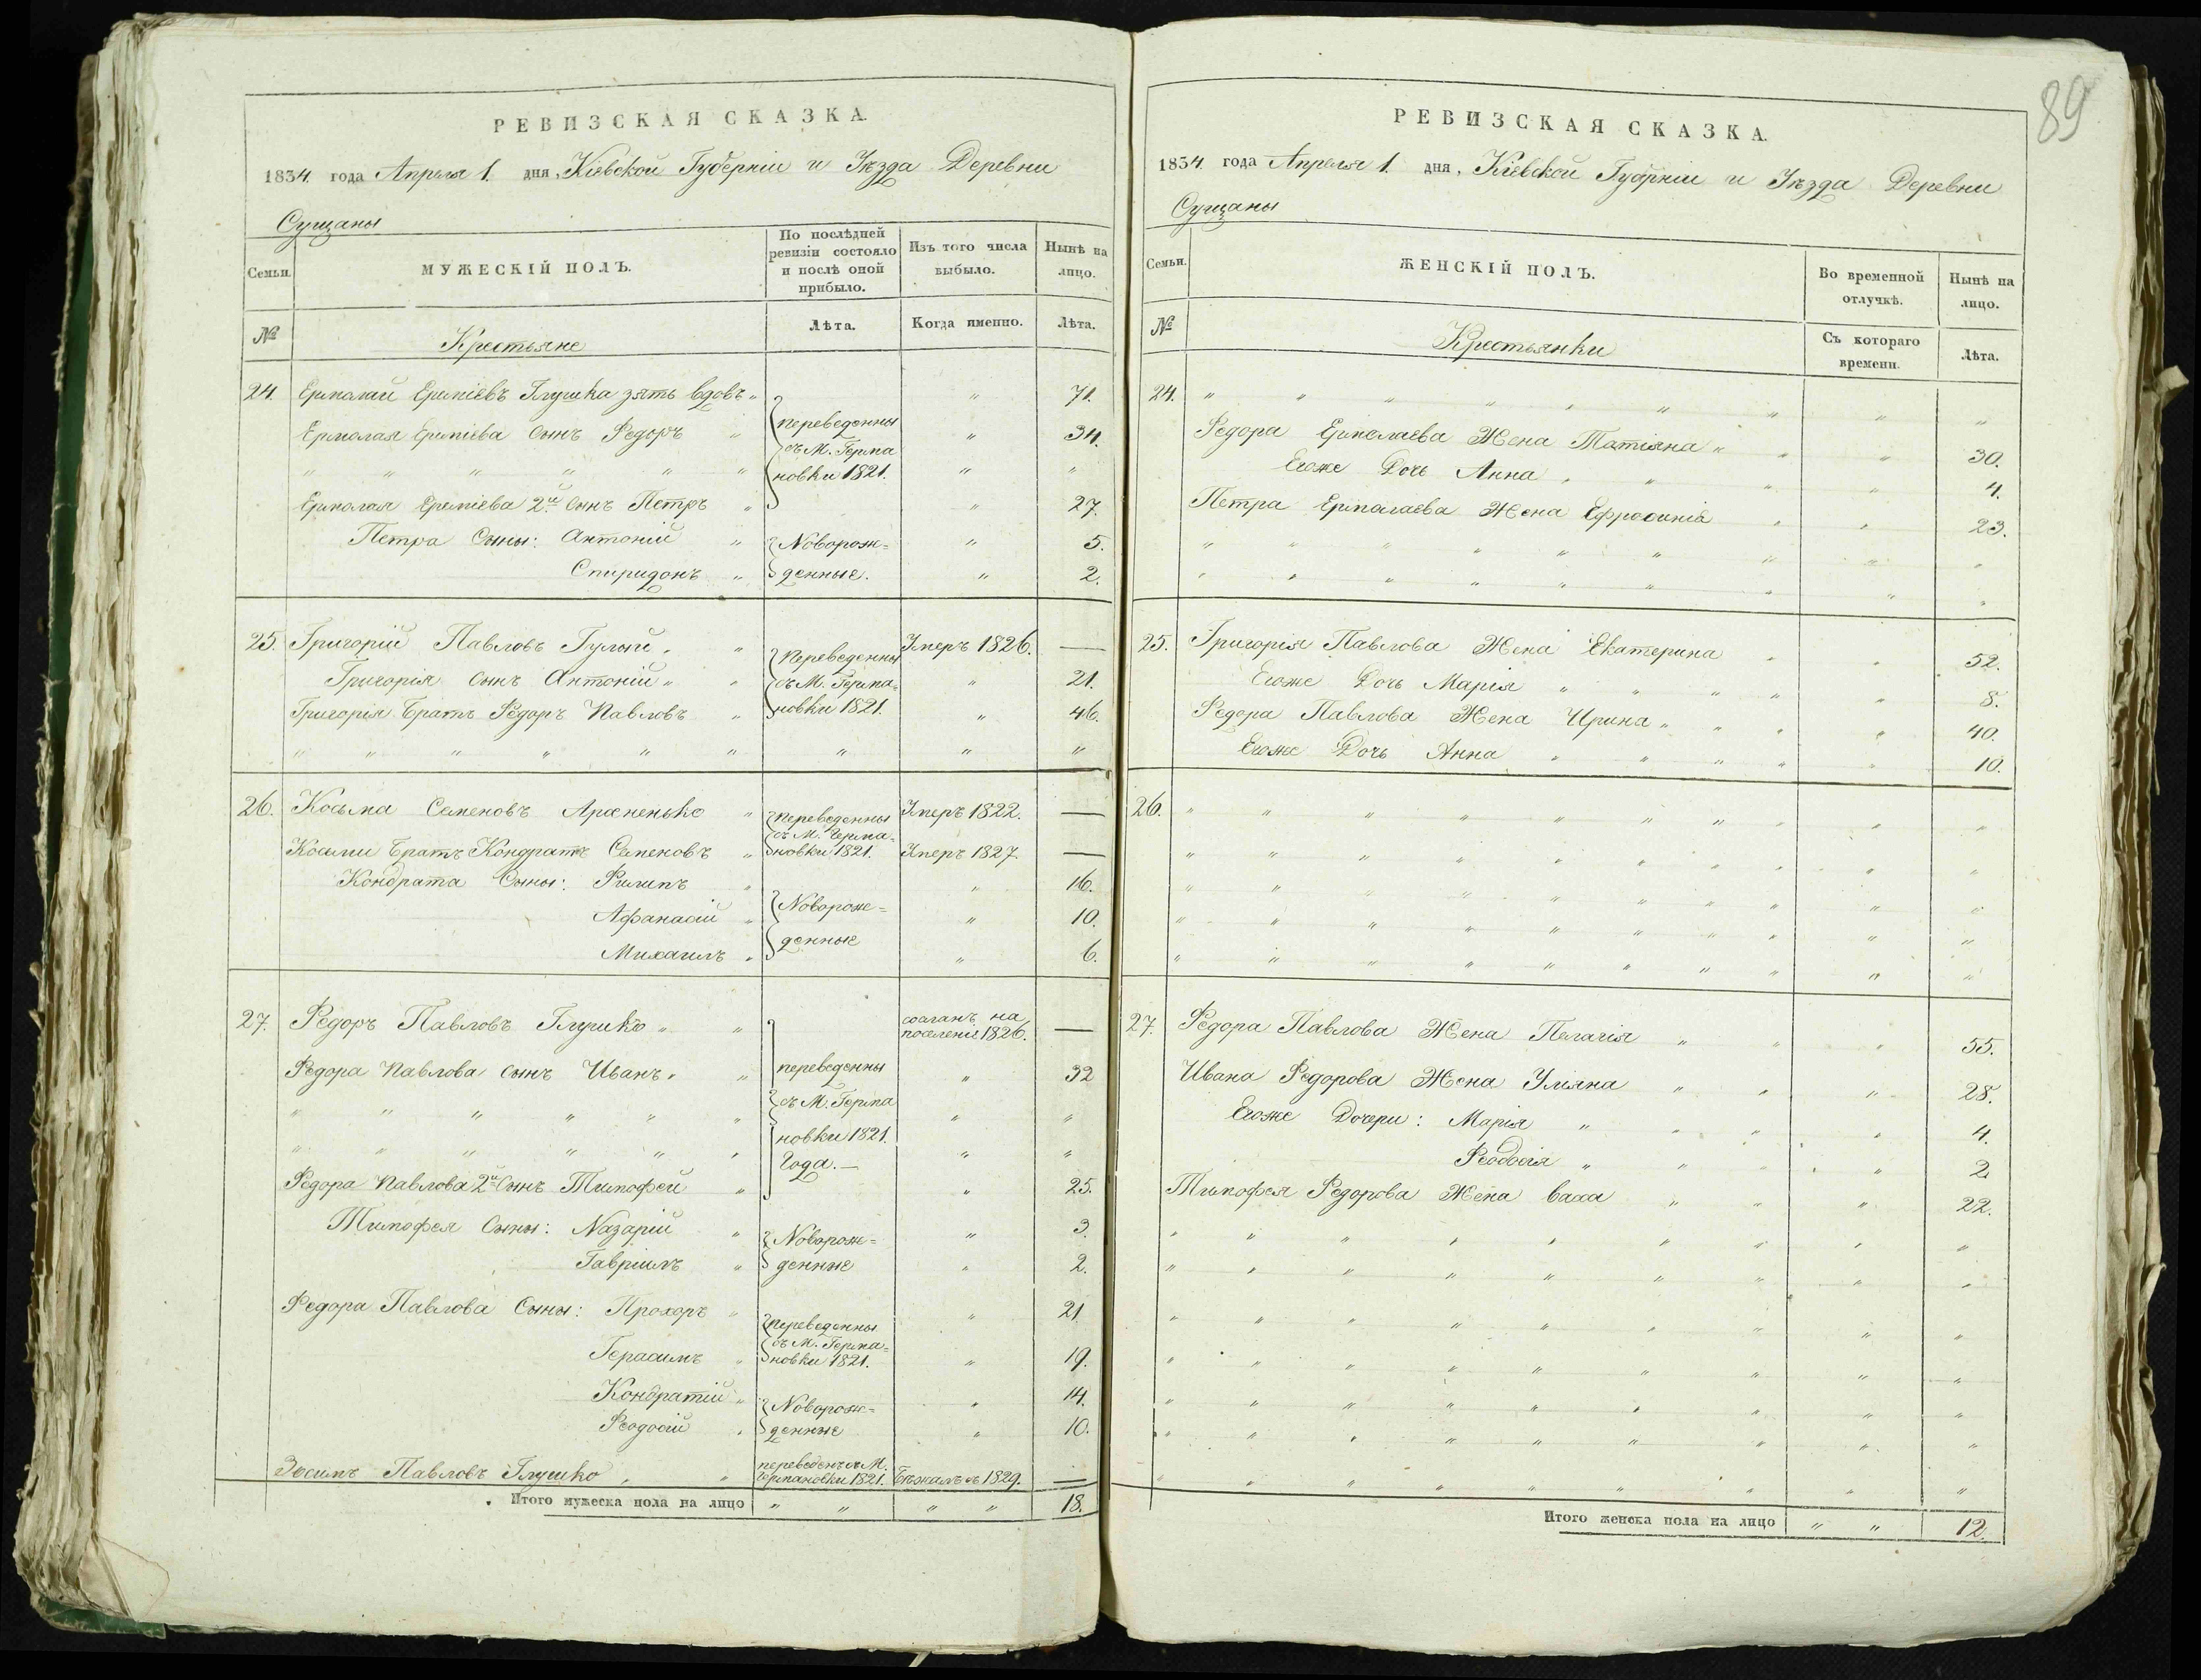 РЕВИЗСКАЯ СКАЗКА.
1834. года Апреля 1. дня, Кіевской Губерніи и Уѣзда Деревни
Сущаны
Семьи.
МУЖЕСКІЙ ПОЛЪ.
По послѣдней ревизіи состояло и послѣ оной прибыло.
Изъ того числа выбыло.
Нынѣ на лицо.
№
Крестьяне
Лѣта.
Когда именно.
Лѣта.
24. Ермолай Ереміевъ Глушка зять вдовъ " переведенны " 71.
Ермолая Ереміева Сынъ Федоръ " съ М. Герма " 34.
" " " " " " новки 1821. " "
Ермолая Ереміева 2й Сынъ Петръ " " 27.
Петра Сыны: Антоній " Новорож= " 5.
Спиридонъ " денные. " 2.
25. Григорій Павловъ Гулый " " переведенны Умеръ 1826. —
Григорія Сынъ Антоній " " съ М. Герма= " 21.
Григорія Братъ Федоръ Павловъ " новки 1821. " 46.
" " " " " " " " "
26. Косьма Семеновъ " переведенны Умеръ 1822. —
съ М. Герма=
Косьми Братъ Кондратъ Семеновъ " новки 1821. Умеръ 1827. —
Кондрата Сыны: Филипъ " " 16.
Афанасій " Новорож= " 10.
Михаилъ " денные " 6.
27. Федоръ Павловъ Глушко " " сосланъ на поселеніе 1826. —
Федора Павлова Сынъ Иванъ " " переведенны " 32
" " " " " " съ М. Герма " "
" " " " " " новки 1821. Года. — " "
Федора Павлова 2й Сынъ Тимофей " " 25.
Тимофея Сыны: Назарій " Новорож= " 3.
Гавріилъ " денные " 2.
Федора Павлова Сыны: Прохоръ " переведенны " 21.
съ М. Герма=
Герасимъ " новки 1821. " 19.
Кондратій " Новорож= " 14.
Феодосій " денные " 10.
Зосимъ Павловъ Глушко " " переведенъ съ М. Германовки 1821. Бѣжалъ въ 1829. —
Итого мужеска пола на лицо " " " " 18.
89
РЕВИЗСКАЯ СКАЗКА.
1834. года Апреля 1. дня, Кіевской Губерніи и Уѣзда Деревни
Сущаны
Семьи.
ЖЕНСКІЙ ПОЛЪ.
Во временной отлучкѣ.
Нынѣ на лицо.
№
Крестьянки
Съ котораго времени.
Лѣта.
24. " " " " " " " " "
Федора Ермолаева Жена Татіяна " " " 30.
Егоже Дочь Анна " " " " 4.
Петра Ермолаева Жена Ефросинія " " 23.
" " " " " " " " "
" " " " " " " " "
25. Григорія Павлова Жена Екатерина " " 52.
Егоже Дочь Марія " " " " " 8.
Федора Павлова Жена Ирина " " " " 40.
Егоже Дочь Анна " " " " " 10.
26. " " " " " " " " "
" " " " " " " " " "
" " " " " " " " " "
" " " " " " " " " "
" " " " " " " " " "
27. Федора Павлова Жена Пелагія " " " 55.
Ивана Федорова Жена Уліяна " " " 28.
Егоже Дочери: Марія " " " " 4.
Феодосія " " " " 2.
Тимофея Федорова Жена Васса " " " 22.
" " " " " " " " "
" " " " " " " " "
" " " " " " " " "
" " " " " " " " "
" " " " " " " " "
" " " " " " " " "
" " " " " " " " "
Итого женска пола на лицо " " 12.